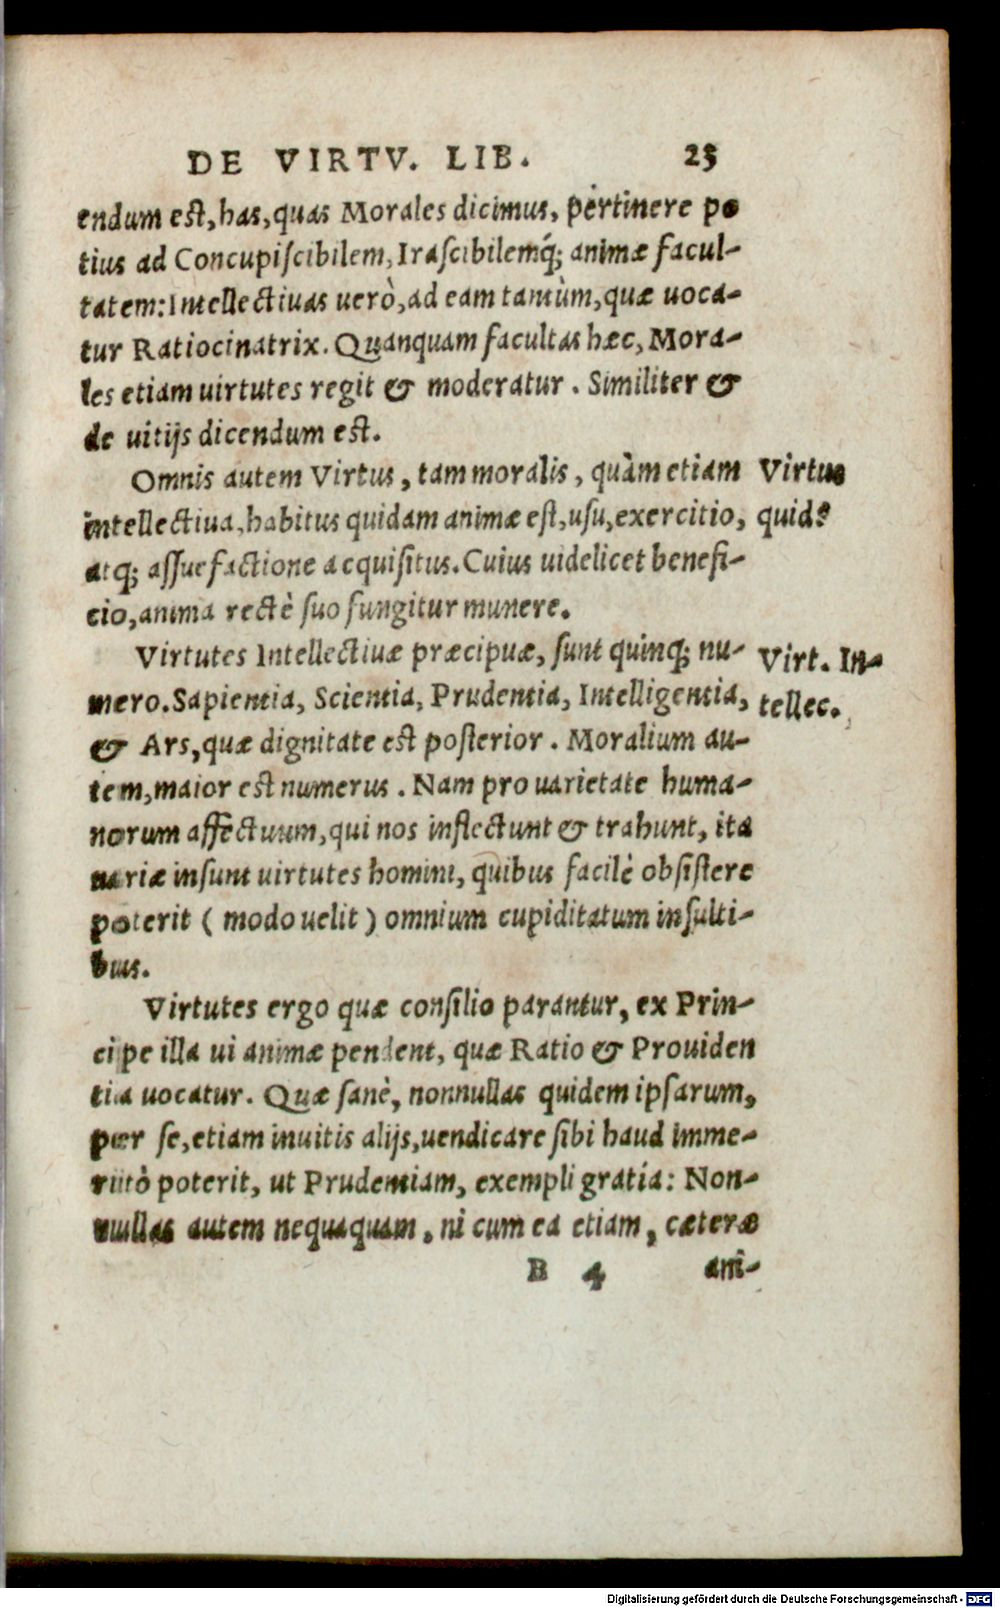 DE VIRTV. LIB. 23
endum est, has, quas Morales dicimus, pertinere po
tius ad Concupiscibilem, Irascibilemq́; animæ facul-
tatem: Intellectiuas uerò, ad eam tantùm, quæ uoca-
tur Ratiocinatrix. Quanquam facultas hæc, Mora-
les etiam uirtutes regit & moderatur. Similiter &
de uitijs dicendum est.
Omnis autem Virtus, tam moralis, quàm etiam
Virtus
intellectiua, habitus quidam animæ est, usu, exercitio,
quid?
atq; assuefactione acquisitus. Cuius uidelicet benefi-
cio, anima rectè suo fungitur munere.
Virtutes Intellectiuæ præcipuæ, sunt quinq; nu-
Virt. In-
mero. Sapientia, Scientia, Prudentia, Intelligentia,
tellec.
& Ars, quæ dignitate est posterior. Moralium au-
tem, maior est numerus. Nam pro uarietate huma-
norum affectuum, qui nos inflectunt & trahunt, ita
uariæ insunt uirtutes homini, quibus facilè obsistere
poterit (modo uelit) omnium cupiditatum insulti-
bus.
Virtutes ergo quæ consilio parantur, ex Prin-
cipe illa ui animæ pendent, quæ Ratio & Prouiden
tia uocatur. Quæ sanè, nonnullas quidem ipsarum,
per se, etiam inuitis alijs, uendicare sibi haud imme-
ritò poterit, ut Prudentiam, exempli gratia: Non-
nullas autem nequaquam, ni cum ea etiam, cæteræ
B 4 ani-
Digitalisierung gefördert durch die Deutsche Forschungsgemeinschaft - DFG